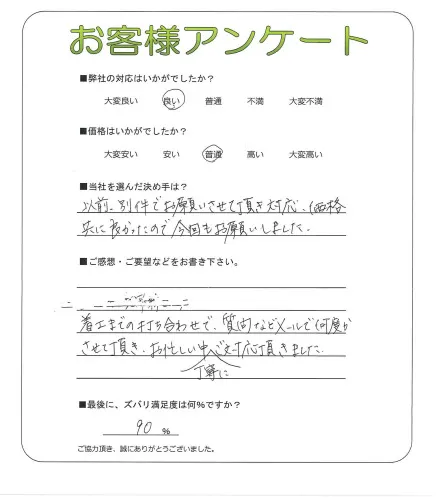 お客様アンケート
■弊社の対応はいかがでしたか?
大変良い 良い 普通 不満 大変不満
■価格はいかがでしたか?
大変安い 安い 普通 高い 大変高い
■当社を選んだ決め手は?
以前、別件でお願いさせて頂き対応、価格
共に良かったので今回もお願いしました。
■ご感想・ご要望などをお書き下さい。
着工までの打ち合わせで、質問などメールで何度か
させて頂き、お忙しい中ご対応頂きました。
丁寧に
■最後に、ズバリ満足度は何%ですか?
90 %
ご協力頂き、誠にありがとうございました。